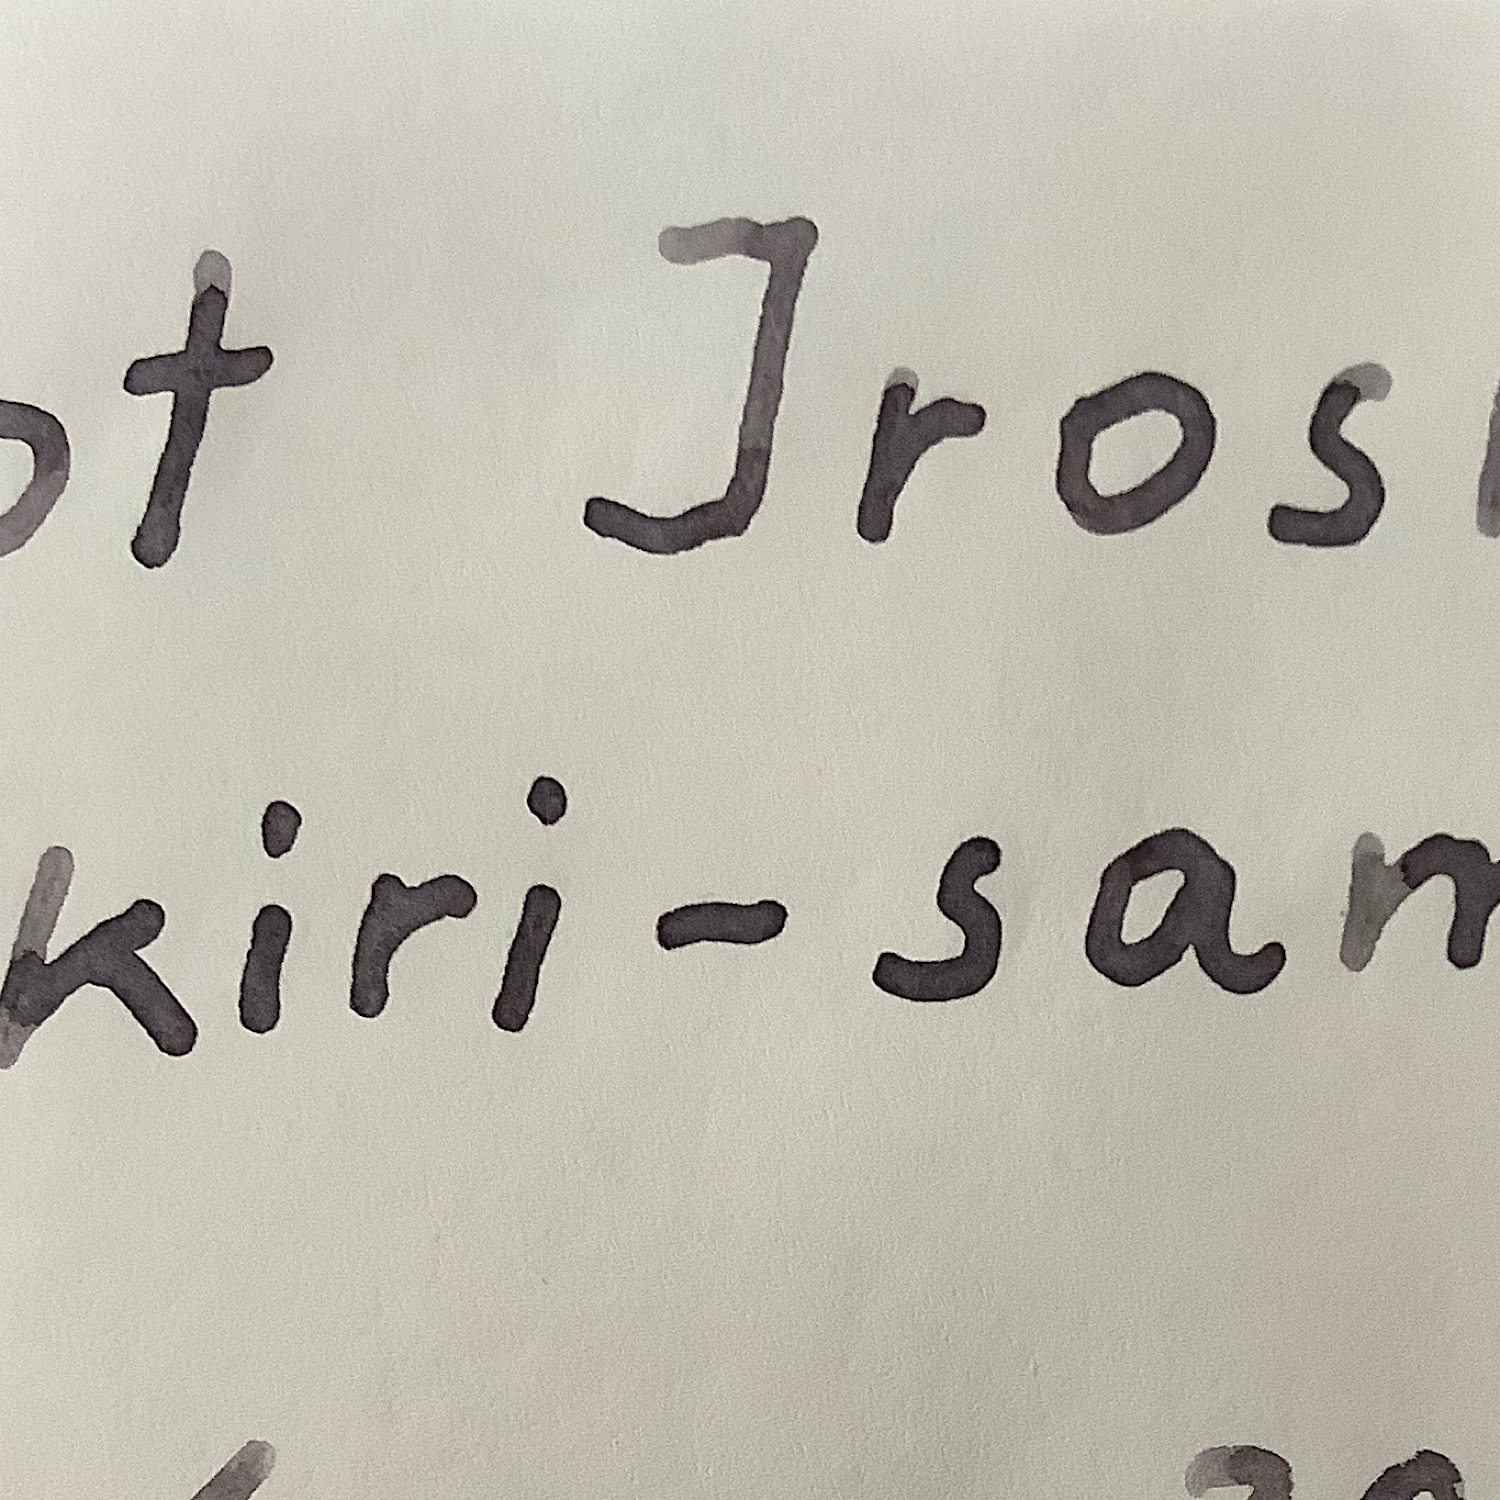 ot Jros
kiri-sam